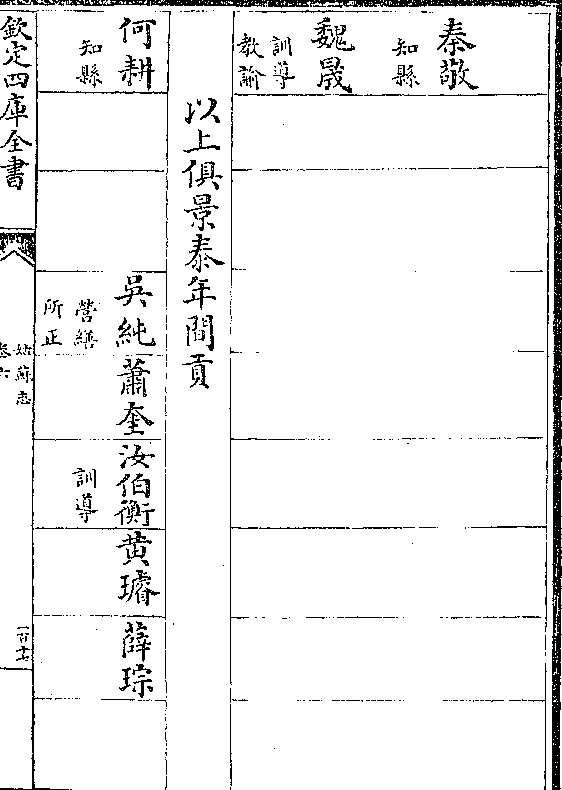 秦敬
知縣
魏晟
訓導
教諭
以上俱景泰年間貢
何耕
知縣
吳純
營繕
所正
蕭奎
汝伯衡
訓導
黄璿
薛琮
欽定四庫全書
姑蘇志